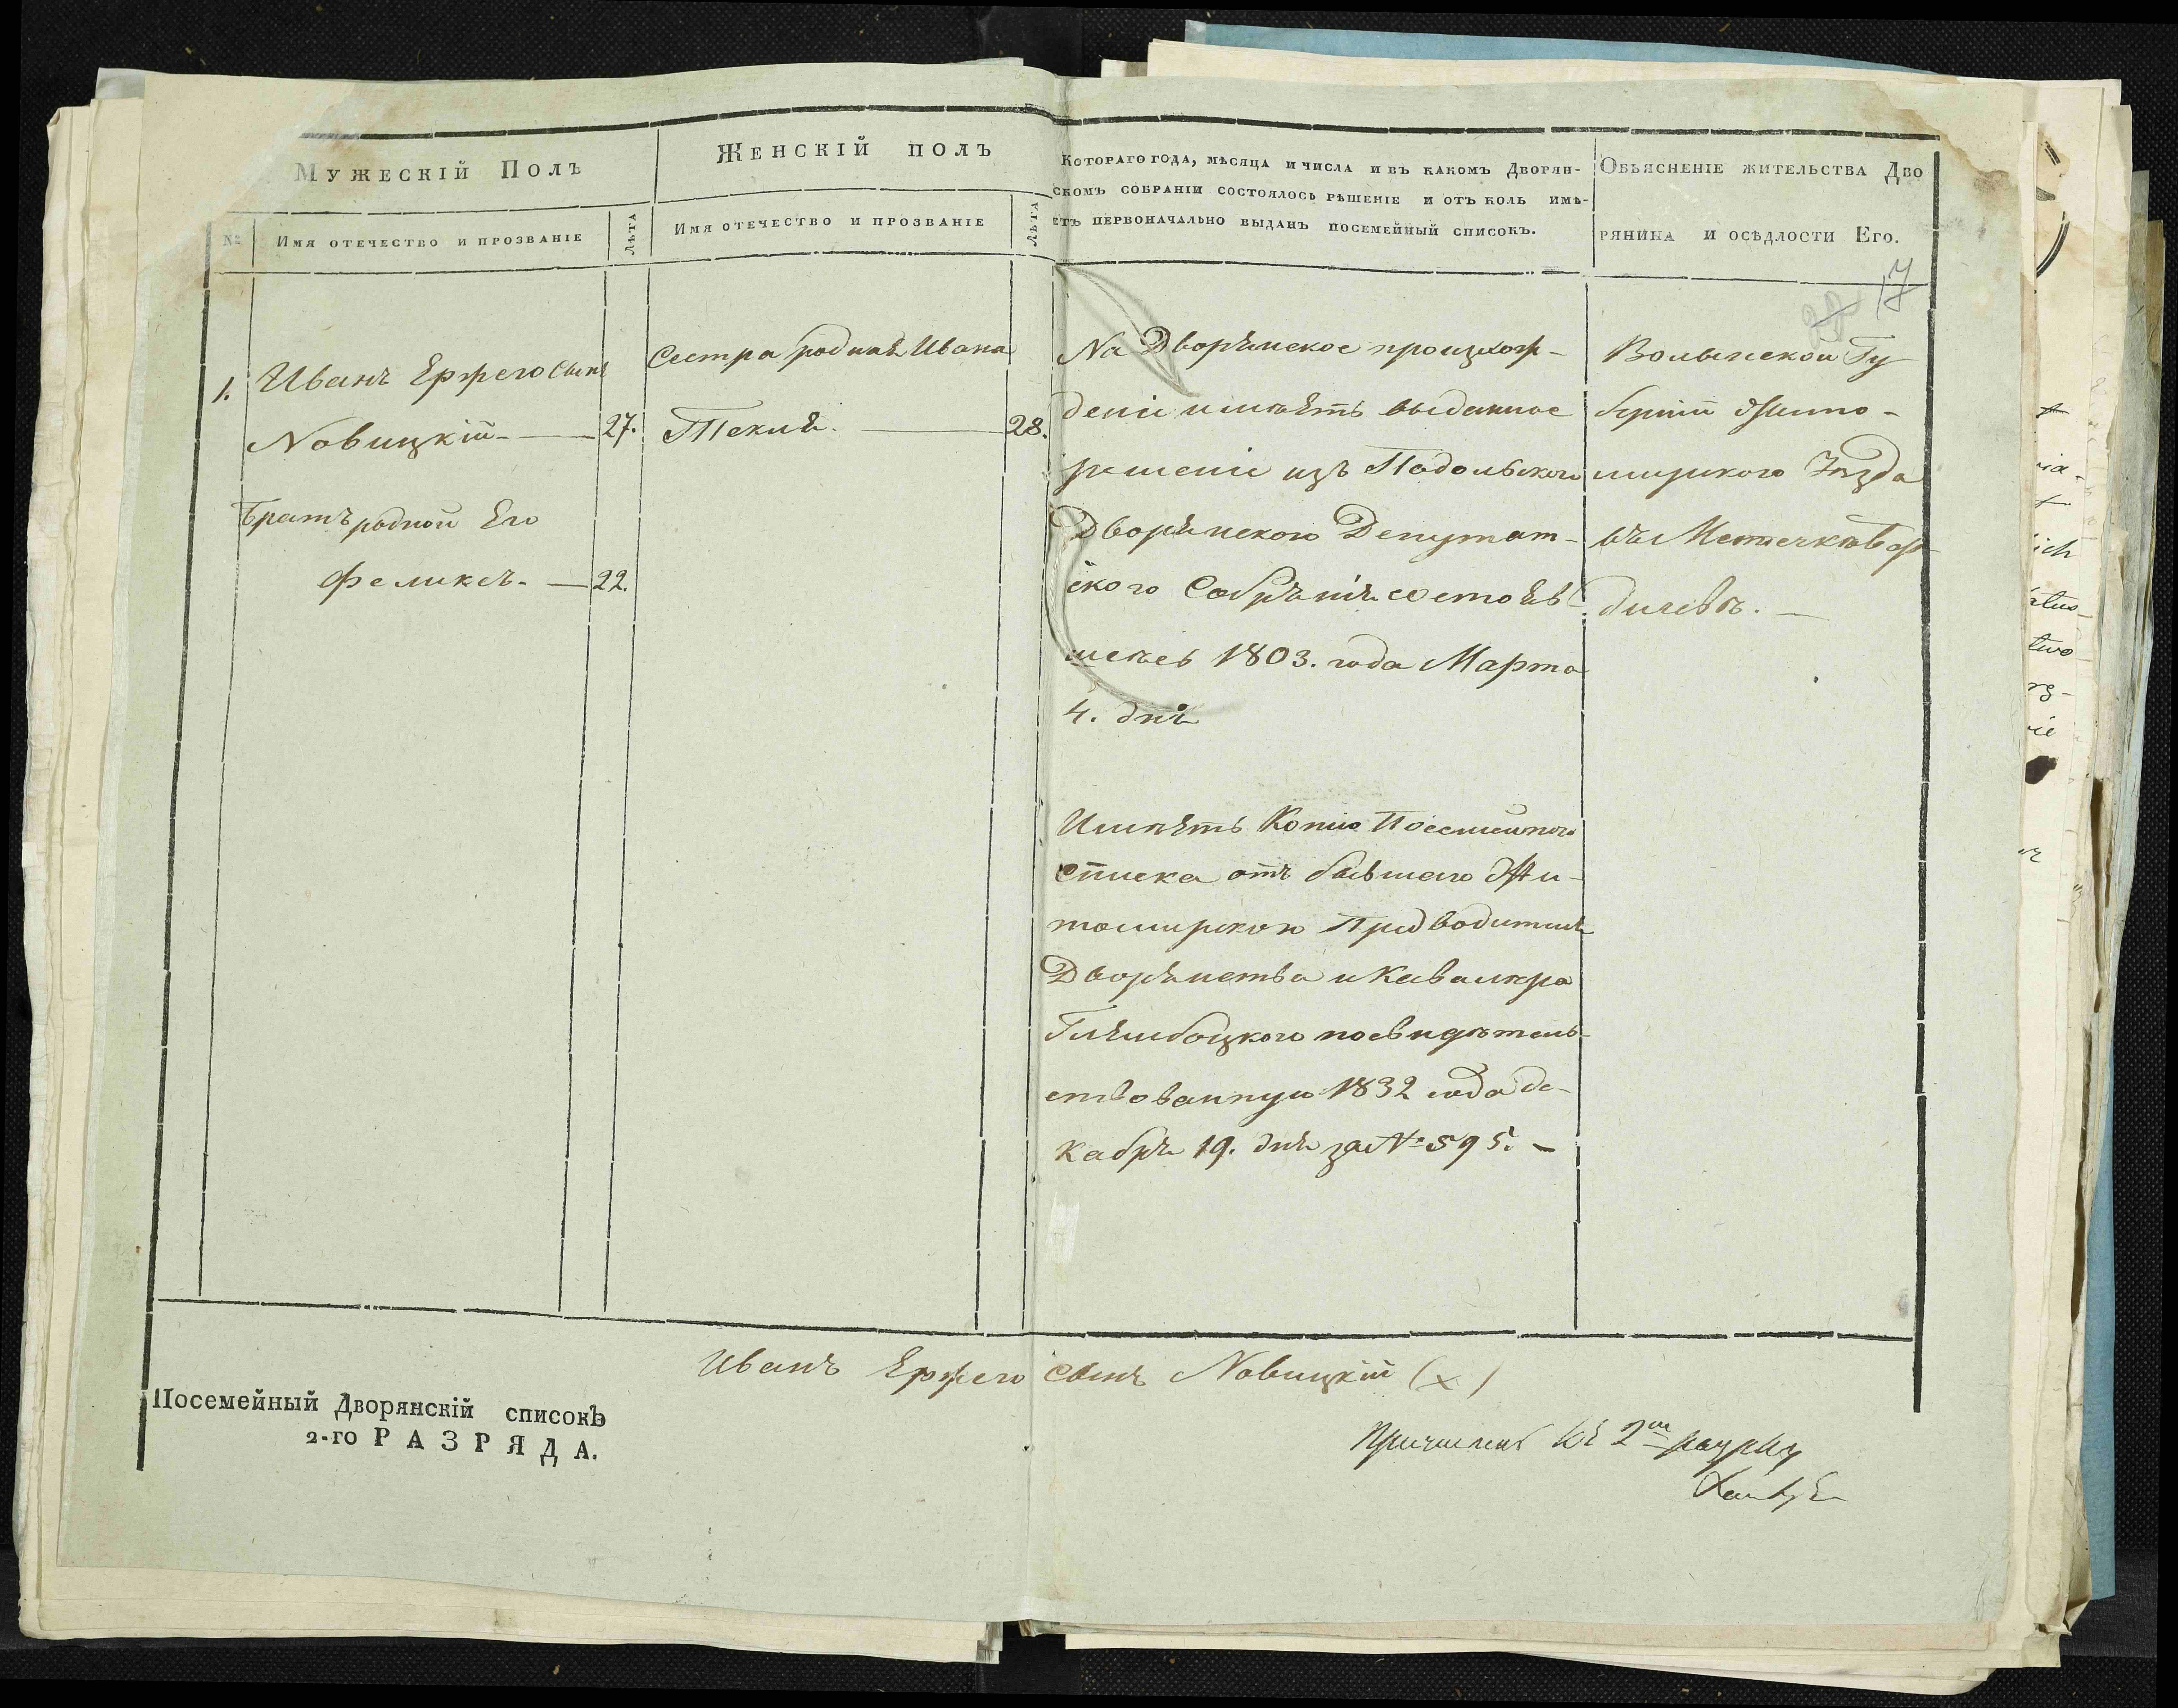 Мужескій Полъ
Женскій полъ
Котораго года, мѣсяца и числа и въ какомъ Дворян-
скомъ собраніи состоялось рѣшеніе и отъ коль имѣ-
етъ первоначально выданъ посемейный списокъ.
Объясненіе жительства Дво
рянина и осѣдлости Его.
№
Имя отечество и прозваніе
Лѣта
Имя отечество и прозваніе
Лѣта
17
1. Иванъ Ержего сынъ
Новицкій - 27.
Братъ родной Его
Феликсъ. - 22.
Сестра родная Ивана
Текля. 28.
На Дворянское происхож-
деніе имѣетъ выданное
рѣшеніе изъ Подольского
Дворянского Депутат-
ского Собранія состояв-
шеесь 1803. года Марта
4. дня
Имѣетъ Копію Посемейного
списка отъ бывшего Жи-
томирского Предводителя
Дворянства и Кавалера
Глембоцкого посвидѣтель-
ствованную 1832 года де-
кабря 19. дня за № 595. -
Волынской Гу
берніи Жито-
мирского уѣзда
въ Местечкѣ Бер-
дичевѣ. -
Иванъ Ержего сынъ Новицкій (х)
Посемейный Дворянскій списокъ
2-го РАЗРЯДА.
Причисленъ къ 2му разряду